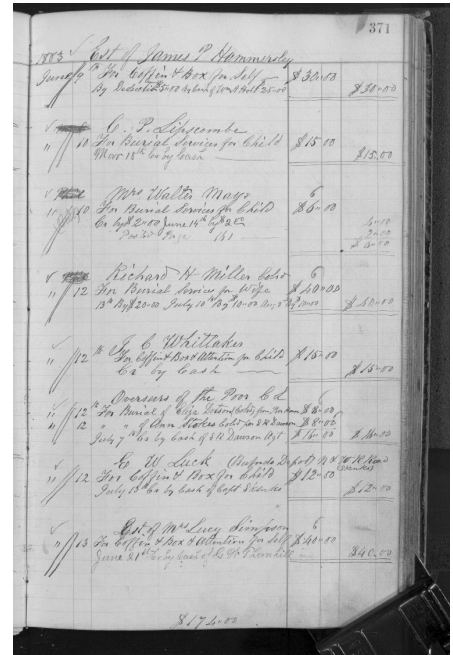 371
1883 Est of James P Hammersley
June 9th For Coffin & Box for Self $30=00
By Deduction 5=00 by Cash of 25=00 $30=00
C. P. Lipscombe
" 10 For Burial Services for Child $15=00
Mar 18th Cr by Cash $15.00
Mrs Walter Mays
" 10 For Burial Services for Child $6=00
Cr by $2=00 June 14th by 4=00
Posted Page 2=00
Richard H Miller Cold
" 12 For Burial Service for Wife $40=00
13th By $20=00 July 10th By $10=00 Aug By 10=00 $40=00
G C Whittaker
" 12th For Coffin & Box & Attention for Child $15=00
Cr by Cash $15=00
Overseers of the Poor C L
" 12th For Burial of Eliza (Cold) $8=00
" 12 " " of Ann Stokes Cold for S R Dawson $8=00
July 7th Cr by Cash of S R Dawson Agt $16=00 $16=00
G W Luck (Bufords Depot) N & W R Road
" 12 For Coffin & Box for Child $12=00
July 13th Cr by Cash of Capt $12=00
Est of Mrs Lucy Simpson
" 13 For Coffin & Box & Attention for Self $40=00
June 21st Cr by Cash of Thornhill $40.00
$174=00